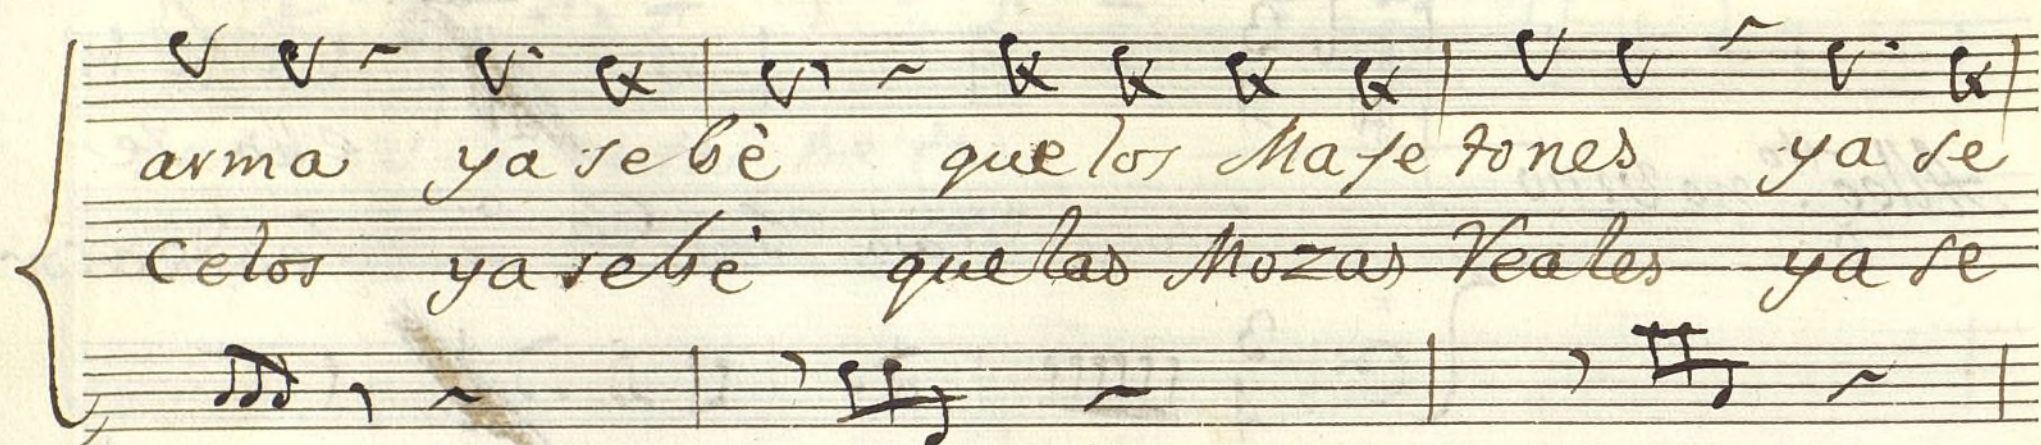 arma ya se bè que los Masetones ya se
Celos ya se bè que las Mozas Reales ya se